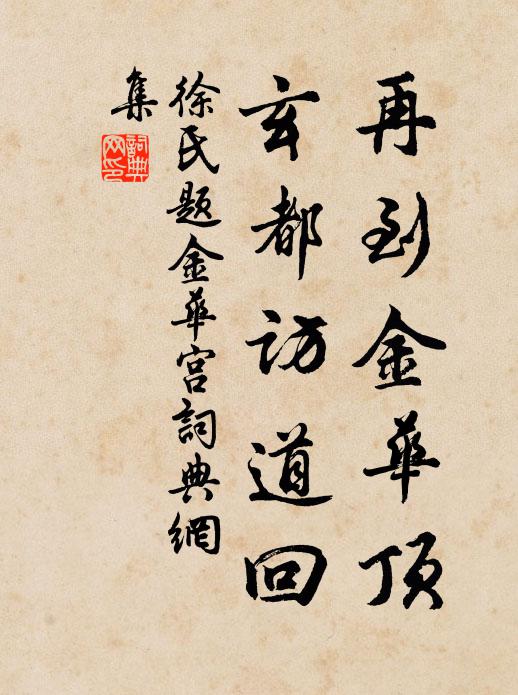 再到金華頂
玄都訪道回
徐氏題金華宮詞典網
集
詞典
网印